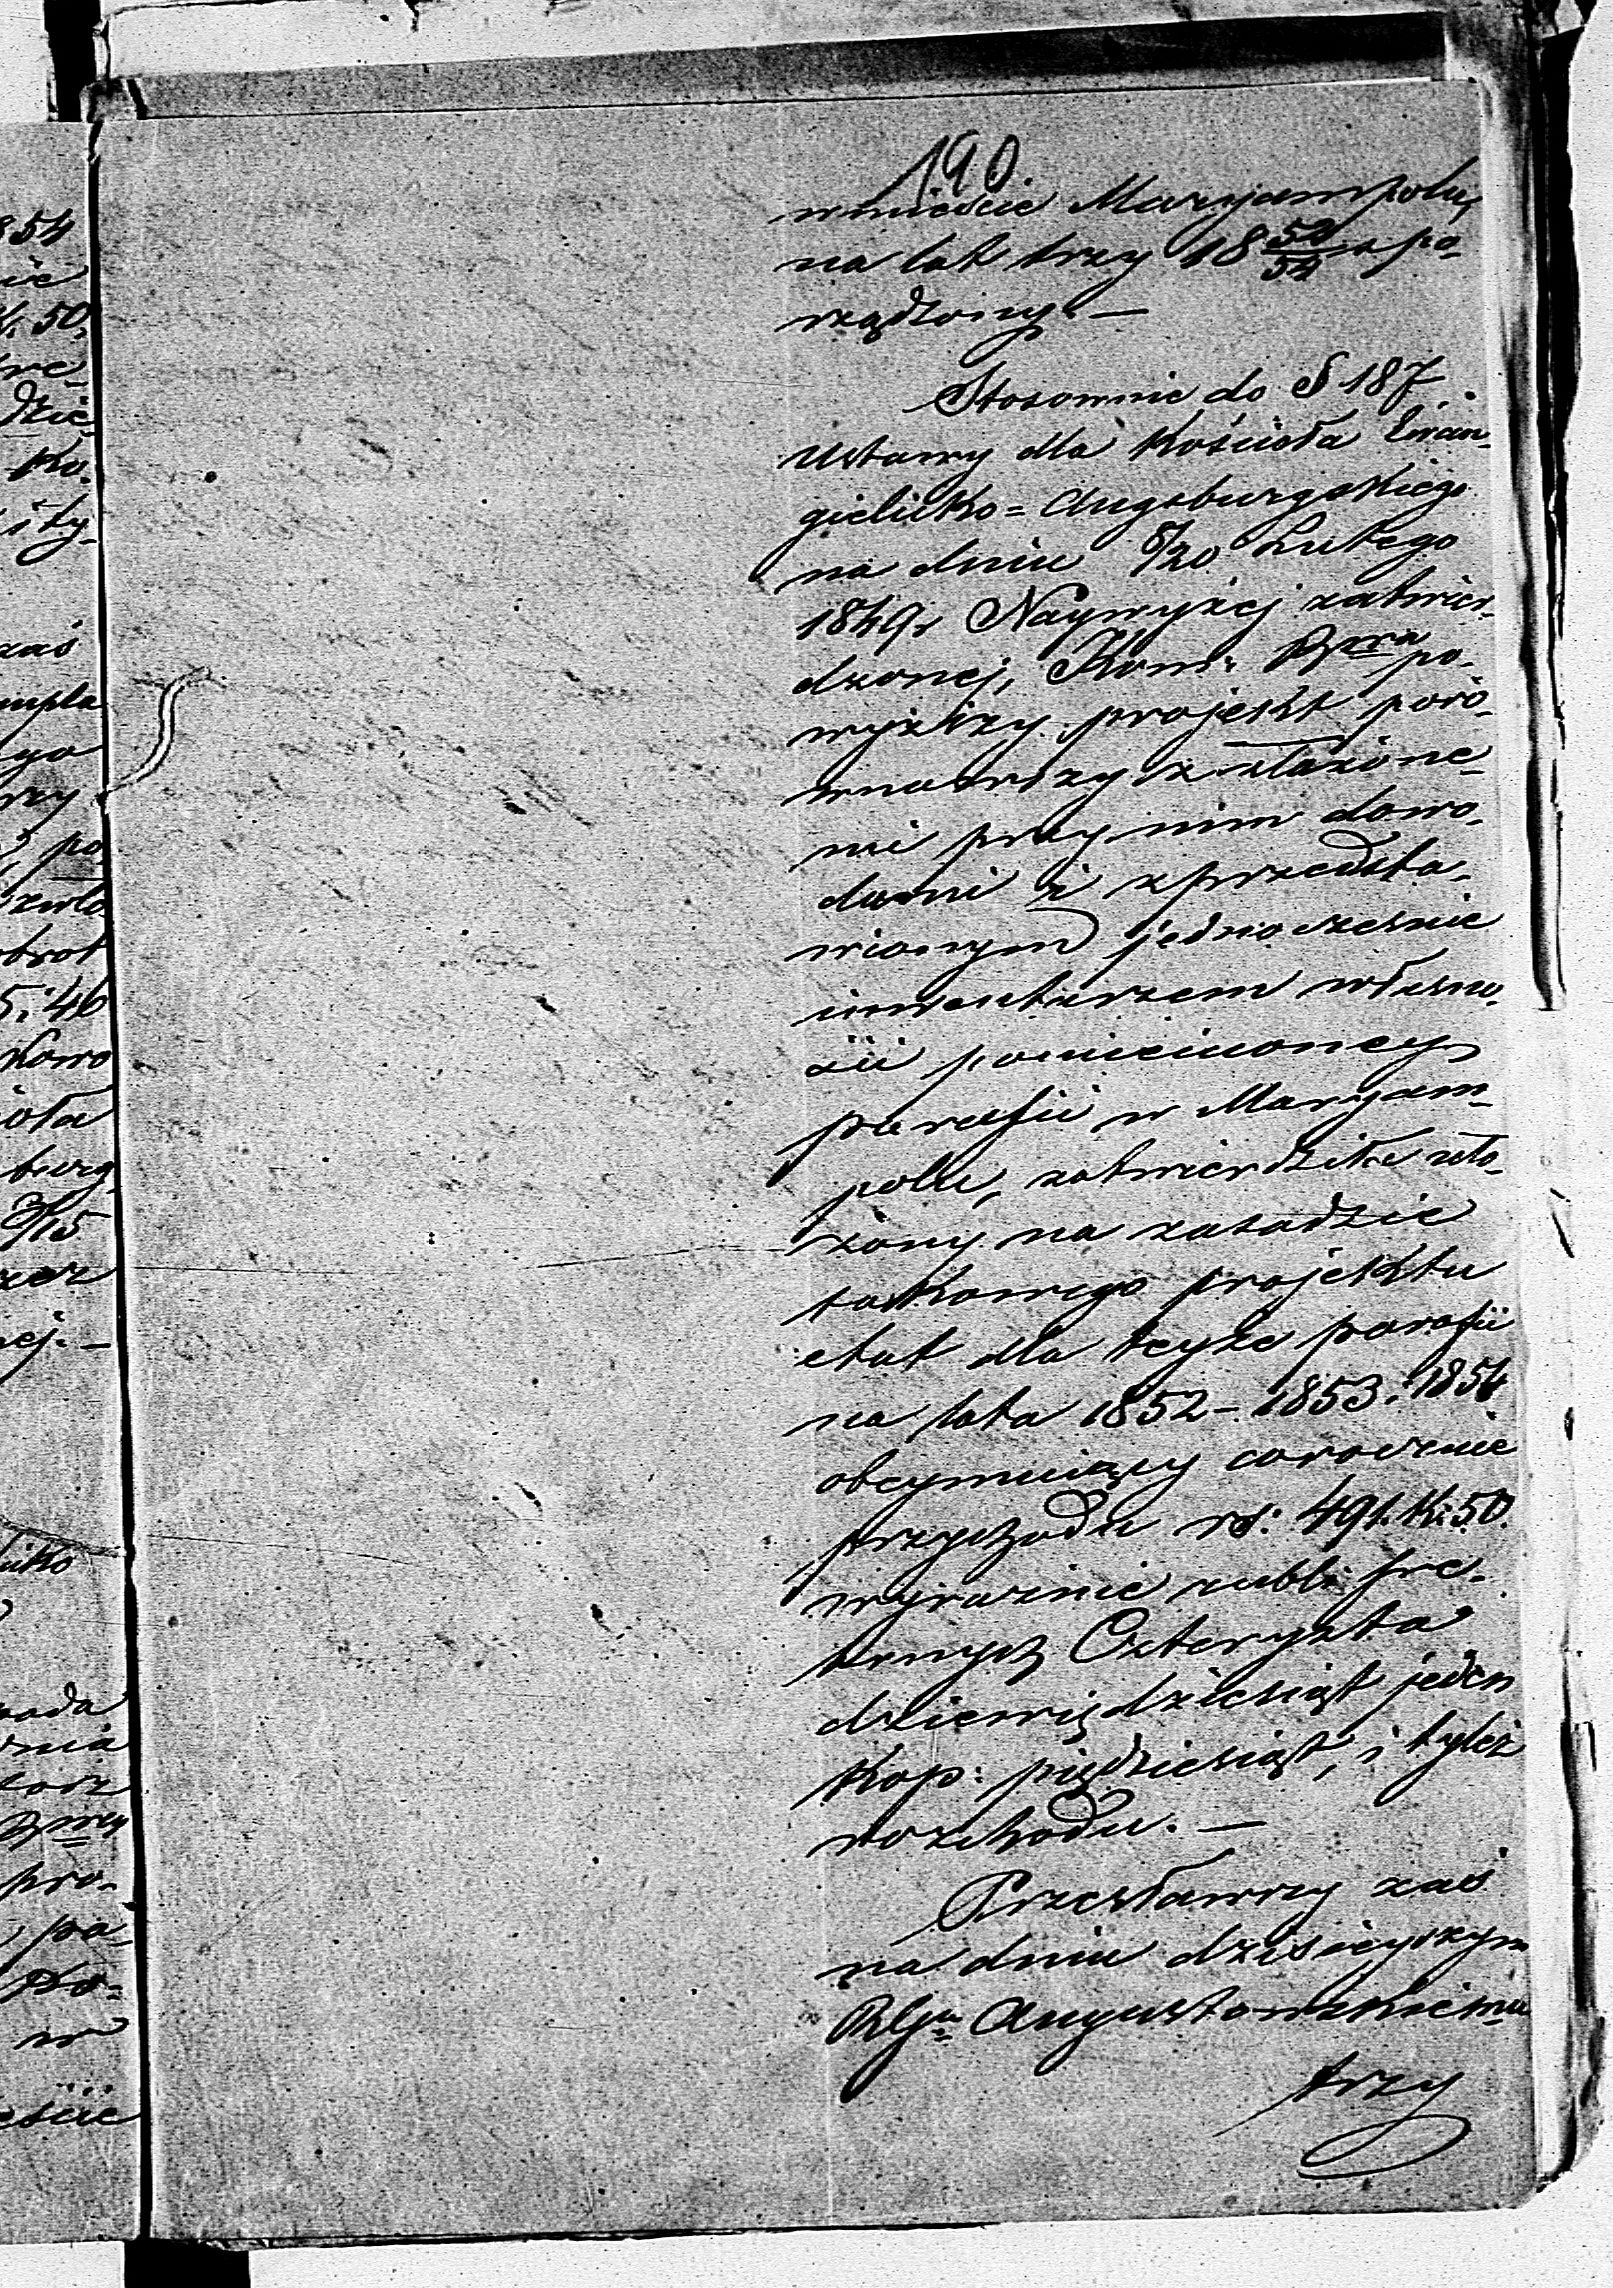 190.
w mieście Maryampolu,
na lat trzy 18 52/54 spo-
rządzony. —
Stosownie do § 187
Ustawy dla Kościoła Ewan-
gielicko = Augsburgskiego
na dniu 8/20 Lutego
1849 r. Naywyżej zatwier-
dzonej, Kom: Rząwa po-
wyższy projekt poró-
wnawszy z złożone-
mi przy nim dowo-
dami i z przedsta-
wionym jednocześnie
inwentarzem własno-
ści pomienioney
parafii w Maryam-
polu, zatwierdziła uło-
żony na zasadzie
takowego projektu
etat dla teyże parafii
na lata 1852 – 1853. 1854
obeymuiący corocznie
przychodu rs: 491. k: 50.
wyraznie rubli sre-
brnych Czterysta
dziewiędziesiąt jeden
kop: piędziesiąt, i tyleż
rozchodu. —
Przesławszy zaś
na dniu dzisieyszym
RGu Augustowskiemu
trzy
854
nie
k. 50,
sre-
dzie-
Ko.
i ty-
zaś
mpla
go
rzy
po
brot
5. 46
kowo
ioła
burg
3/15
rzez
nej. —
licko
pro-
pa-
Ko-
w
eście